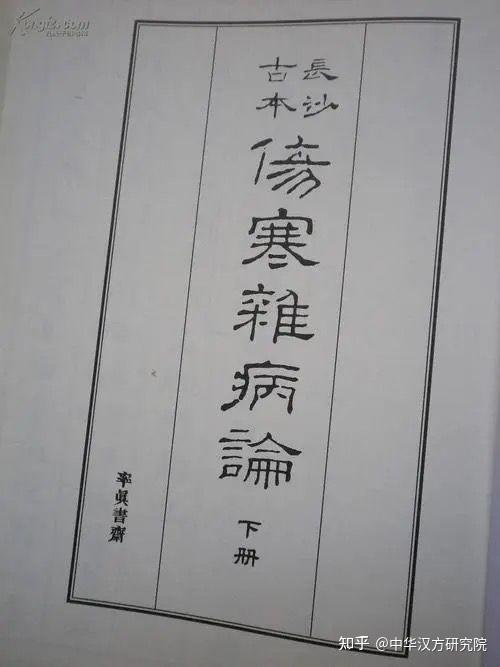 Kongfz.com
長沙
古本
傷寒雜病論
下册
率真書齋
知乎 @中华汉方研究院